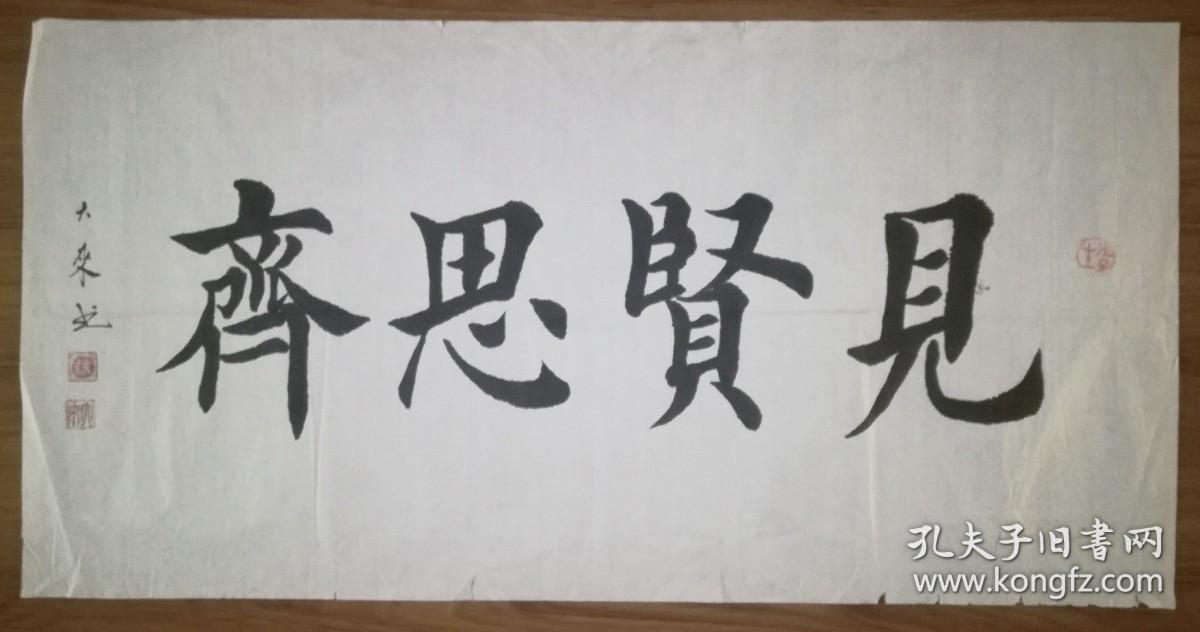 見賢思齊
大來书
孔夫子旧書网
www.kongfz.com